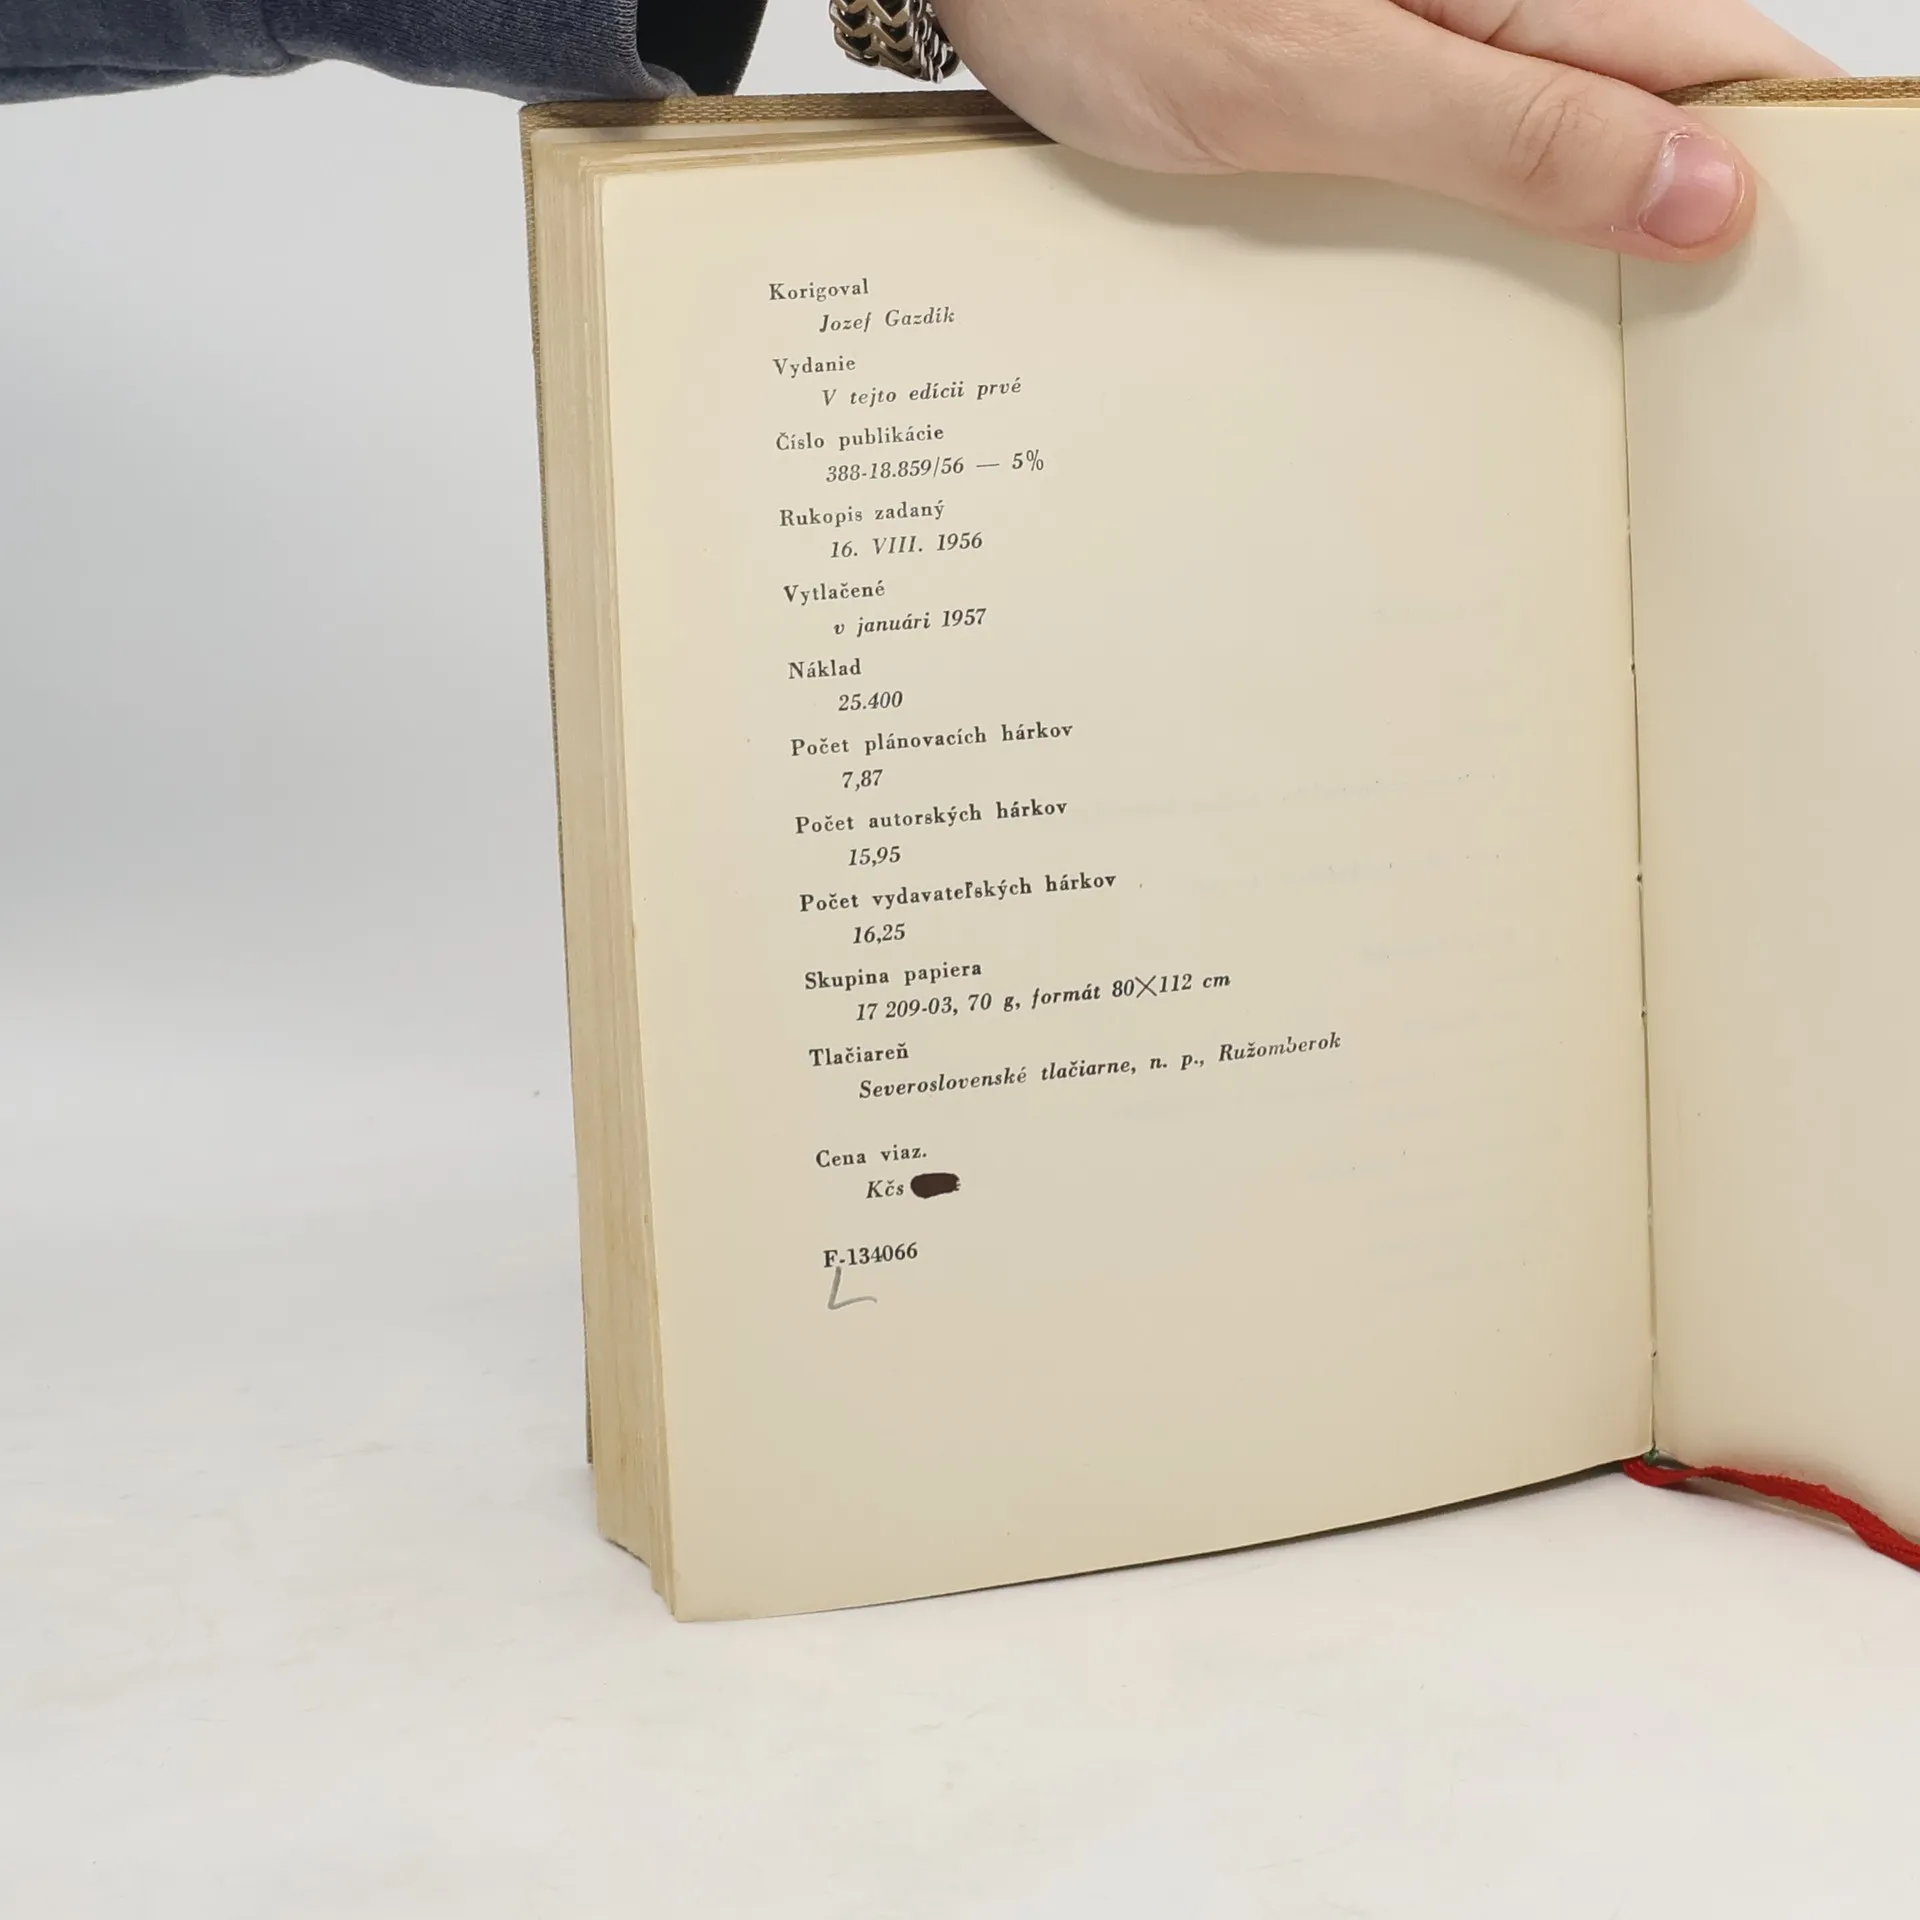 Korigoval
Jozef Gazdík
Vydanie
V tejto edícii prvé
Číslo publikácie
388-18.859/56 — 5%
Rukopis zadaný
16. VIII. 1956
Vytlačené
v januári 1957
Náklad
25.400
Počet plánovacích hárkov
7,87
Počet autorských hárkov
15,95
Počet vydavateľských hárkov
16,25
Skupina papiera
17 209-03, 70 g, formát 80×112 cm
Tlačiareň
Severoslovenské tlačiarne, n. p., Ružomberok
Cena viaz.
Kčs
F-134066